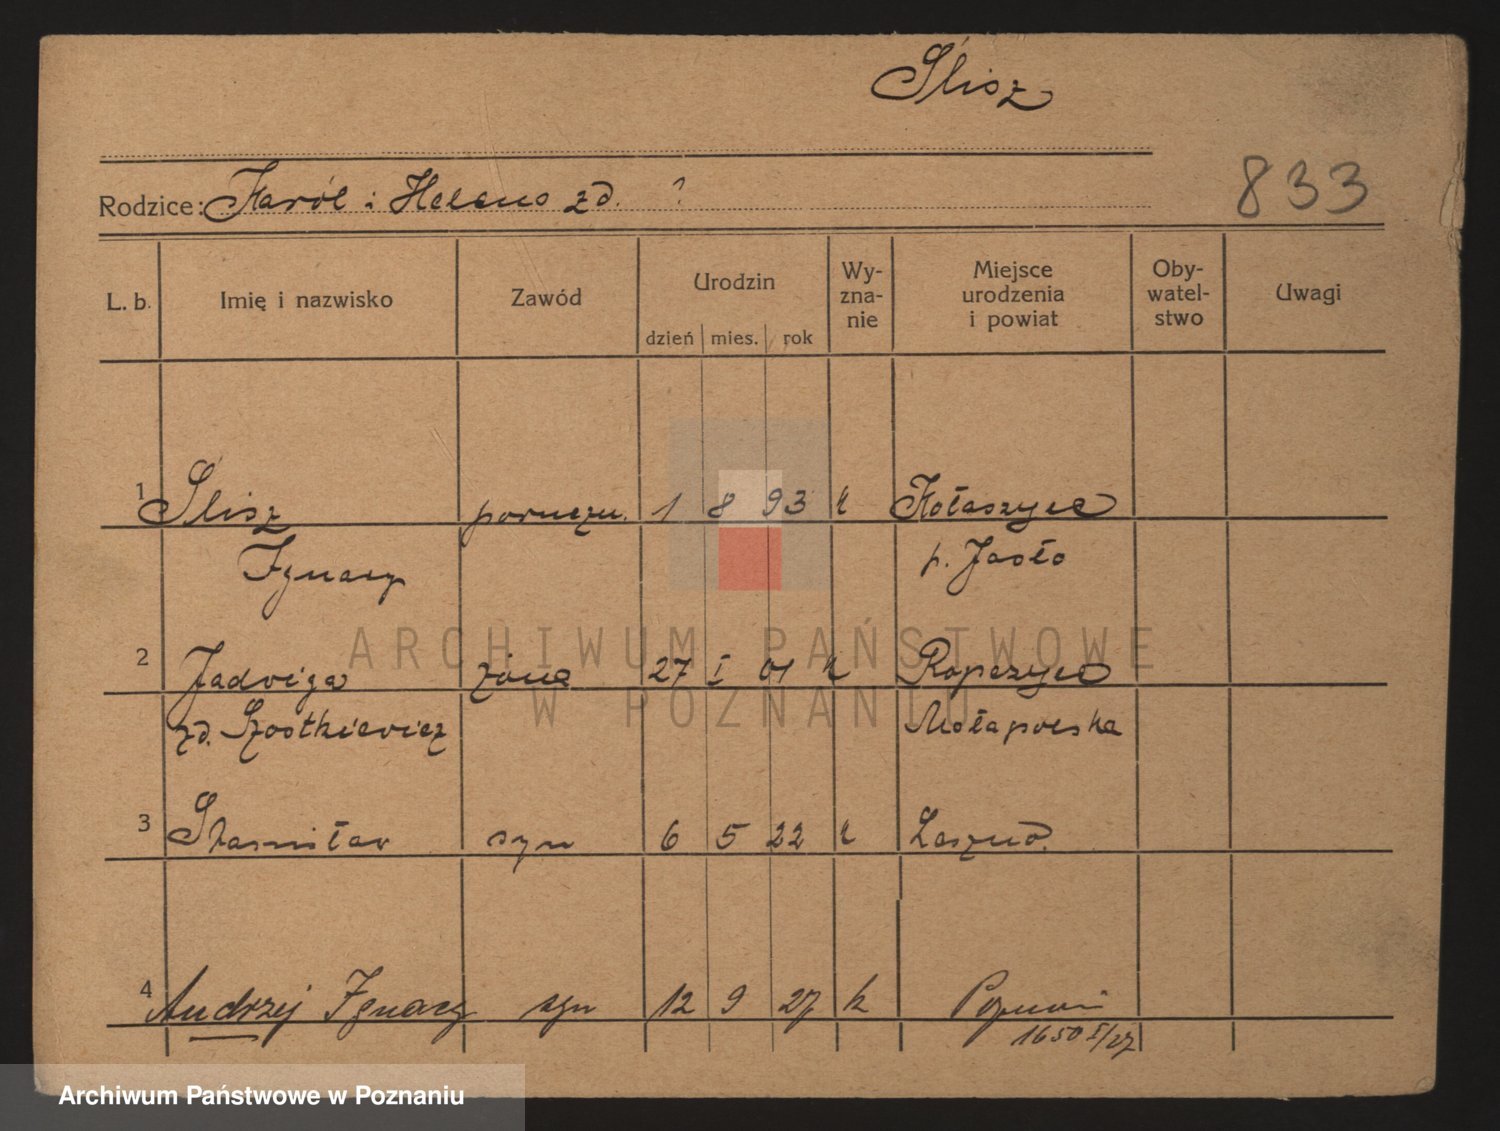 Ślisz
Rodzice: Karól i Helena zd. ?
833
L. b. Imię i nazwisko Zawód Urodzin dzień mies. rok Wy-zna-nie Miejsce urodzenia i powiat Oby-watel-stwo Uwagi
1 Ślisz poruczn. 1 8 93 k Kołaszyce
Ignacy p. Jasło
2 Jadwiga żona 27 I 01 k Ropczyce
zd. Szostkiewicz Małapolska
3 Stanisław syn 6 5 22 k Leszno
4 Andrzej Ignacy syn 12 9 27 k Poznań
1650 I/27
ARCHIWUM PAŃSTWOWE
W POZNANIU
Archiwum Państwowe w Poznaniu